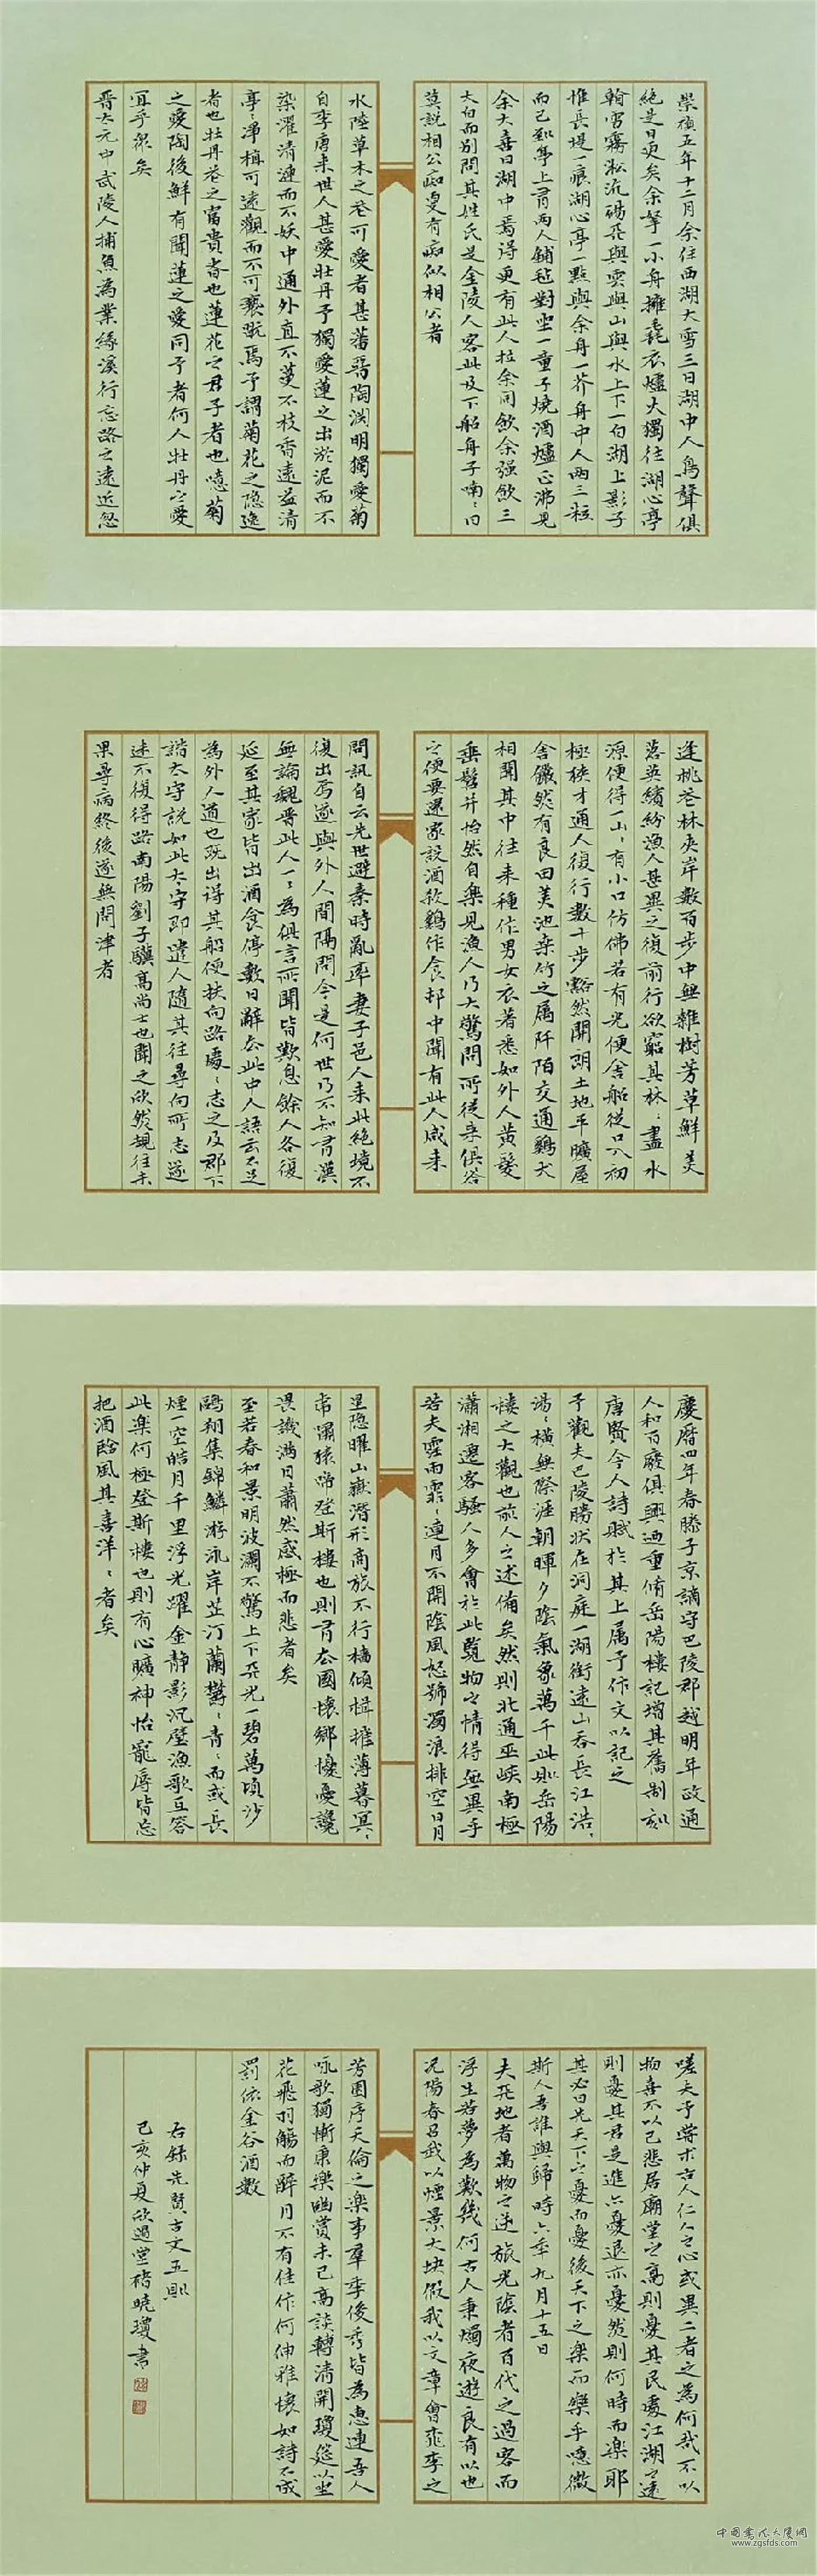 崇禎五年十二月余住西湖大雪三日湖中人鳥聲俱
絕是日更矣余拏一小舟擁毳衣爐火獨往湖心亭
看雪霧凇沆碭天與雲與山與水上下一白湖上影子
惟長堤一痕湖心亭一點與余舟一芥舟中人兩三粒
而已到亭上有兩人鋪氈對坐一童子燒酒爐正沸見
余大喜曰湖中焉得更有此人拉余同飲余强飲三
大白而別問其姓氏是金陵人客此及下船舟子喃〻曰
莫說相公痴更有痴似相公者
水陸草木之花可愛者甚蕃晉陶淵明獨愛菊
自李唐來世人甚愛牡丹予獨愛蓮之出於泥而不
染濯清漣而不妖中通外直不蔓不枝香遠益清
亭〻淨植可遠觀而不可褻翫焉予謂菊花之隐逸
者也牡丹花之富貴者也蓮花之君子者也噫菊
之愛陶後鮮有聞蓮之愛同予者何人牡丹之愛
宜乎衆矣
晉太元中武陵人捕魚為業緣溪行忘路之遠近忽
逢桃花林夾岸數百步中無雜樹芳草鮮美
落英繽紛漁人甚異之復前行欲窮其林〻盡水
源便得一山〻有小口仿佛若有光便舍船從口入初
極狹才通人復行數十步豁然開朗土地平曠屋
舍儼然有良田美池桑竹之屬阡陌交通鷄犬
相聞其中往來種作男女衣著悉如外人黃髮
垂髫并怡然自樂見漁人乃大驚問所從來俱答
之便要還家設酒殺鷄作食村中聞有此人咸來
問訊自云先世避秦時亂率妻子邑人來此絕境不
復出焉遂與外人間隔問今是何世乃不知有漢
無論魏晉此人一〻為俱言所聞皆歎息餘人各復
延至其家皆出酒食停數日辭去此中人語云不足
為外人道也既出得其船便扶向路處〻志之及郡下
詣太守說如此太守即遣人隨其往尋向所志遂
迷不復得路南陽劉子驥高尚士也聞之欣然規往未
果尋病終後遂無問津者
慶曆四年春滕子京謫守巴陵郡越明年政通
人和百廢俱興迺重脩岳陽樓記增其舊制刻
唐賢今人詩賦於其上屬予作文以記之
予觀夫巴陵勝狀在洞庭一湖銜遠山吞長江浩〻
湯〻橫無際涯朝暉夕陰氣象萬千此則岳陽
樓之大觀也前人之述備矣然則北通巫峽南極
瀟湘遷客騷人多會於此覽物之情得無異乎
若夫霪雨霏〻連月不開陰風怒號濁浪排空日月
星隐曜山嶽潛形商旅不行檣傾楫摧薄暮冥〻
虎嘯猿啼登斯樓也則有去國懷鄉憂讒
畏譏滿目蕭然感極而悲者矣
至若春和景明波瀾不驚上下天光一碧萬頃沙
鷗翔集錦鱗游泳岸芷汀蘭鬱〻青〻而或長
煙一空皓月千里浮光躍金靜影沉璧漁歌互答
此樂何極登斯樓也則有心曠神怡寵辱皆忘
把酒臨風其喜洋〻者矣
嗟夫予嘗求古人仁人之心或異二者之為何哉不以
物喜不以己悲居廟堂之高則憂其民處江湖之遠
則憂其君是進亦憂退亦憂然則何時而樂耶
其必曰先天下之憂而憂後天下之樂而樂乎噫微
斯人吾誰與歸時六年九月十五日
夫天地者萬物之逆旅光陰者百代之過客而
浮生若夢為歡幾何古人秉燭夜遊良有以也
况陽春召我以煙景大块假我以文章會桃李之
芳園序天倫之樂事羣季俊秀皆為惠連吾人
咏歌獨慚康樂幽賞未已高談轉清開瓊筵以坐
花飛羽觴而醉月不有佳作何伸雅懷如詩不成
罰依金谷酒數
右錄先賢古文五則
己亥仲夏欣過堂褚曉瓊書
中国书法大厦网
www.zgsfds.com